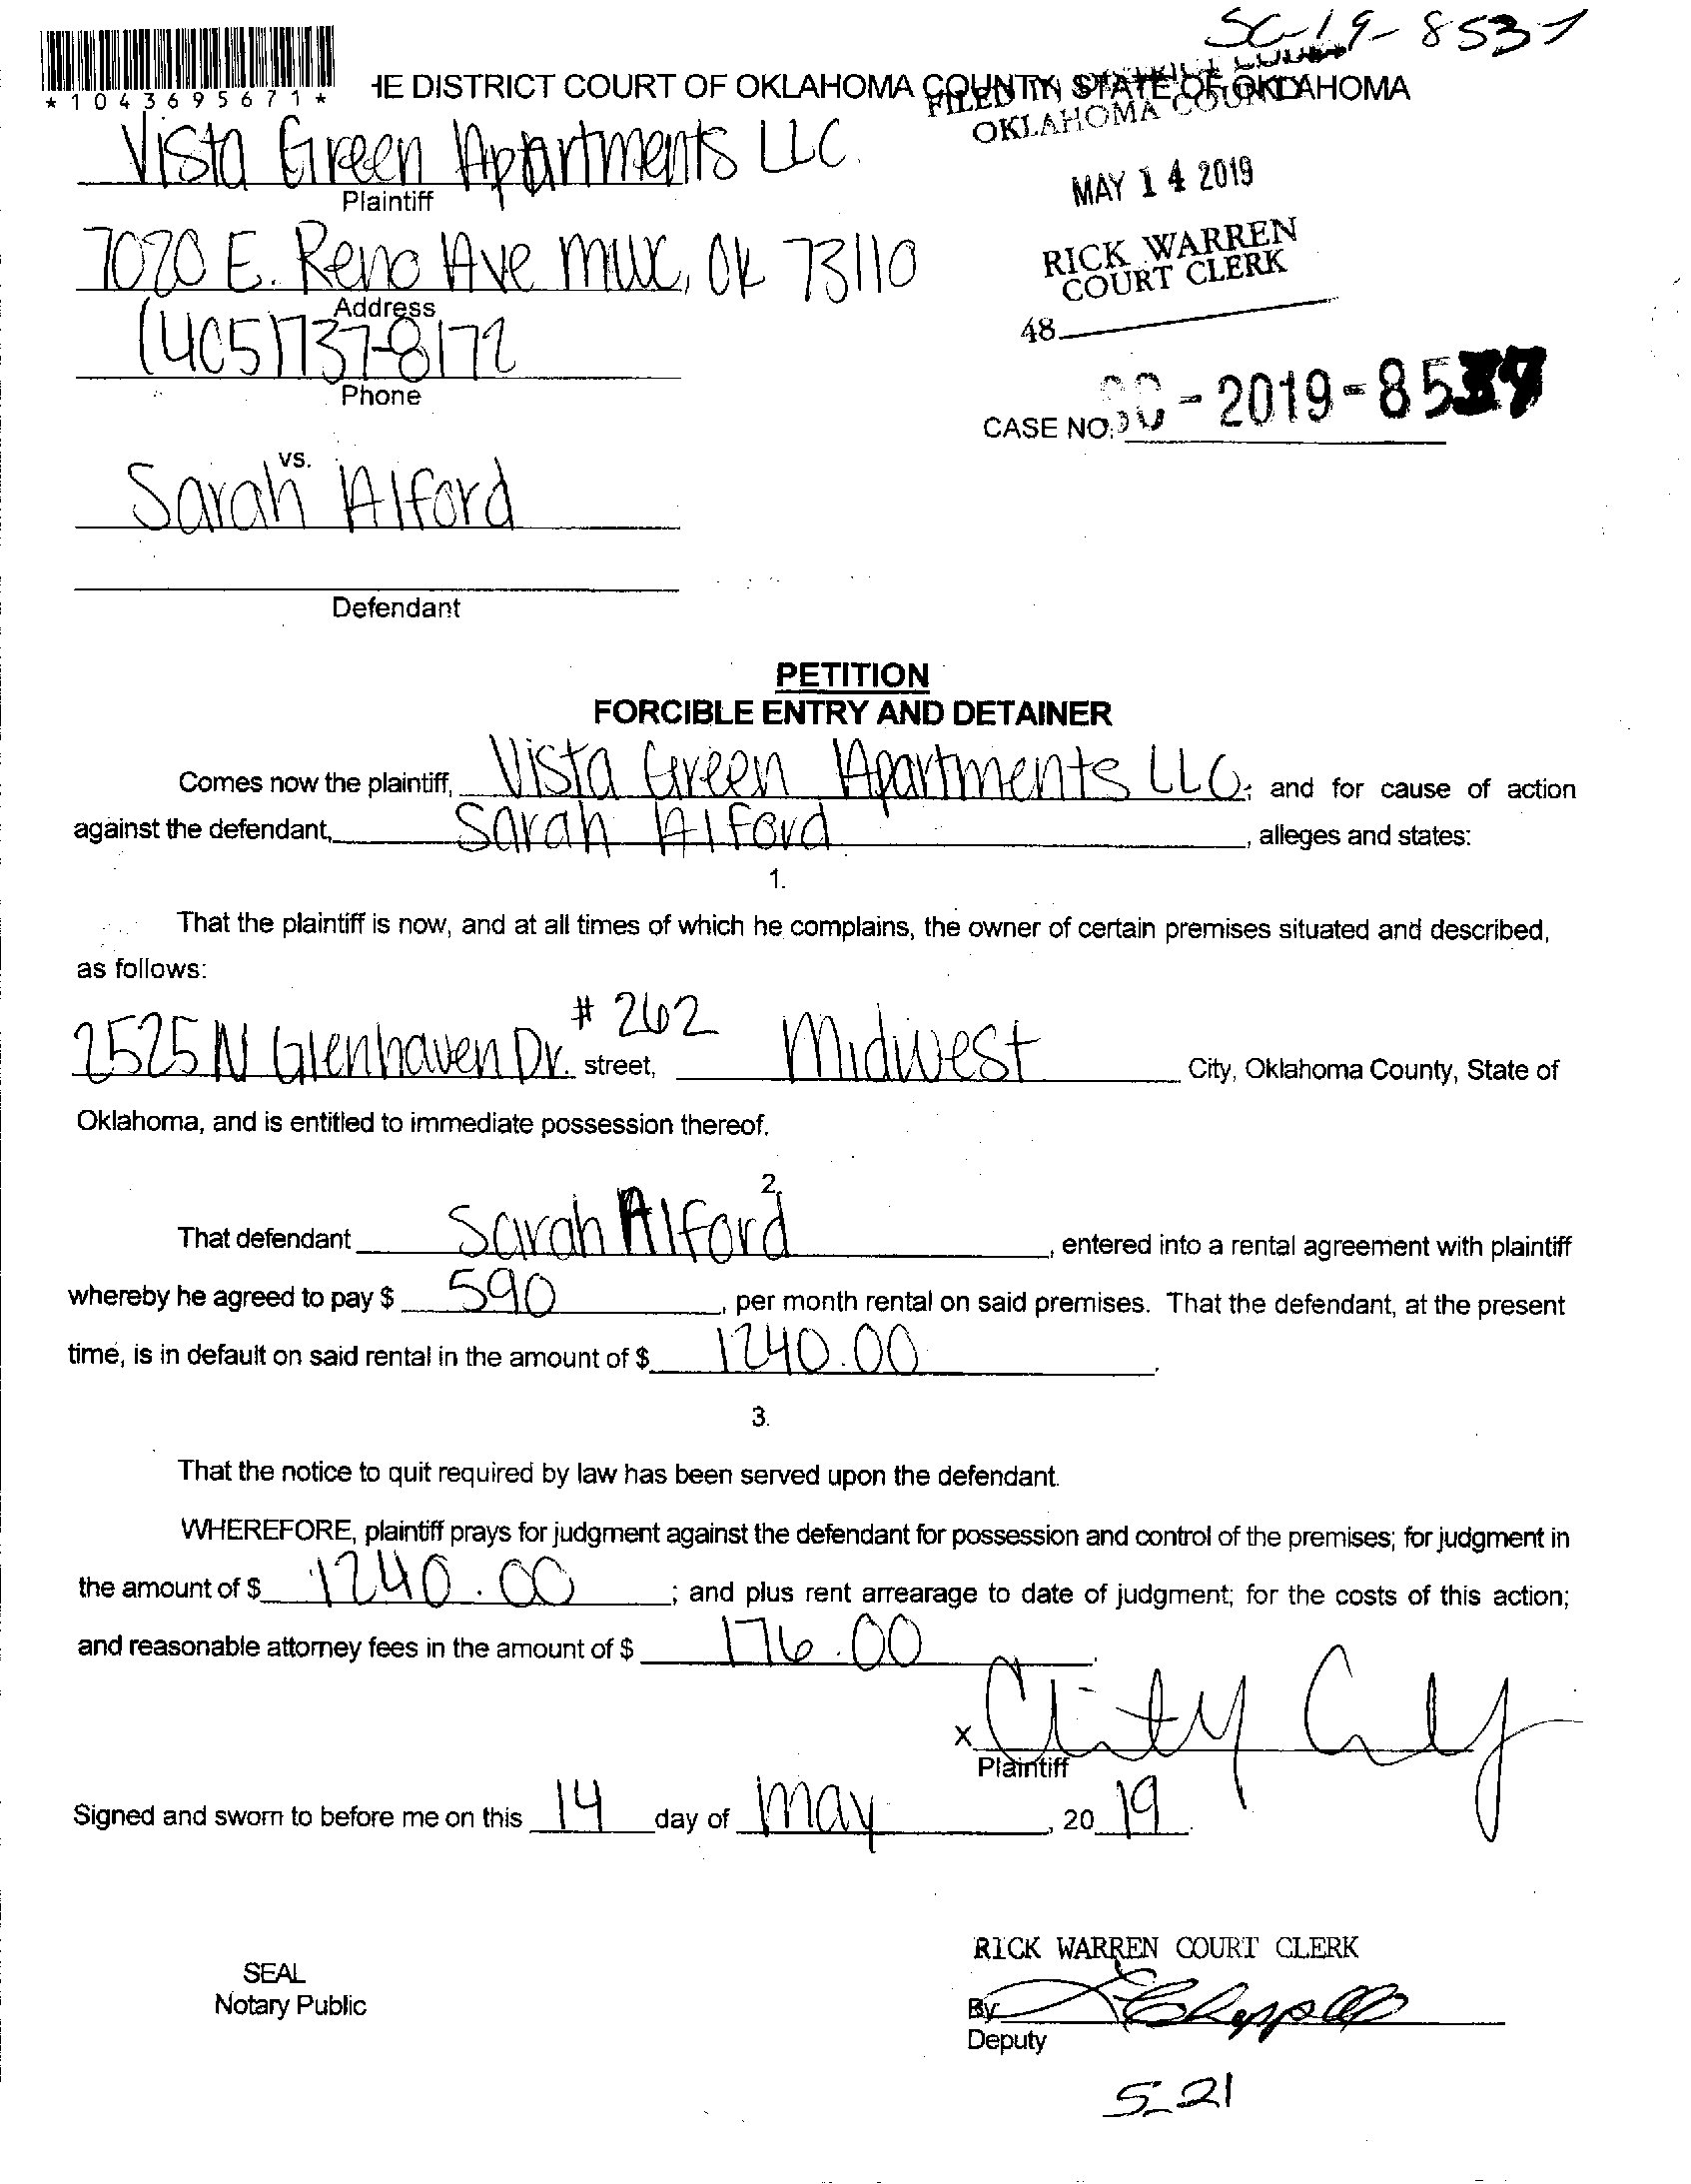 SC-19-8537
*1043695671*
HE DISTRICT COURT OF OKLAHOMA COUNTY, STATE OF OKLAHOMA
FILED IN DISTRICT COURT
OKLAHOMA COUNTY
Vista Green Apartments LLC.
Plaintiff
MAY 14 2019
7020 E. Reno Ave MWC, OK 73110
Address
RICK WARREN
COURT CLERK
(405)737-8172
Phone
48
CASE NO. SC-2019-8537
vs.
Sarah Alford
Defendant
PETITION
FORCIBLE ENTRY AND DETAINER
Comes now the plaintiff, Vista Green Apartments LLC; and for cause of action
against the defendant, Sarah Alford, alleges and states:
1.
That the plaintiff is now, and at all times of which he complains, the owner of certain premises situated and described,
as follows:
2525 N Glenhaven Dr. #262 street, Midwest City, Oklahoma County, State of
Oklahoma, and is entitled to immediate possession thereof.
2.
That defendant Sarah Alford, entered into a rental agreement with plaintiff
whereby he agreed to pay $ 590, per month rental on said premises. That the defendant, at the present
time, is in default on said rental in the amount of $ 1240.00.
3.
That the notice to quit required by law has been served upon the defendant.
WHEREFORE, plaintiff prays for judgment against the defendant for possession and control of the premises; for judgment in
the amount of $ 1240.00; and plus rent arrearage to date of judgment; for the costs of this action;
and reasonable attorney fees in the amount of $ 176.00.
X
Plaintiff
Signed and sworn to before me on this 14 day of May, 20 19.
RICK WARREN COURT CLERK
SEAL
Notary Public
By
Deputy
5-21